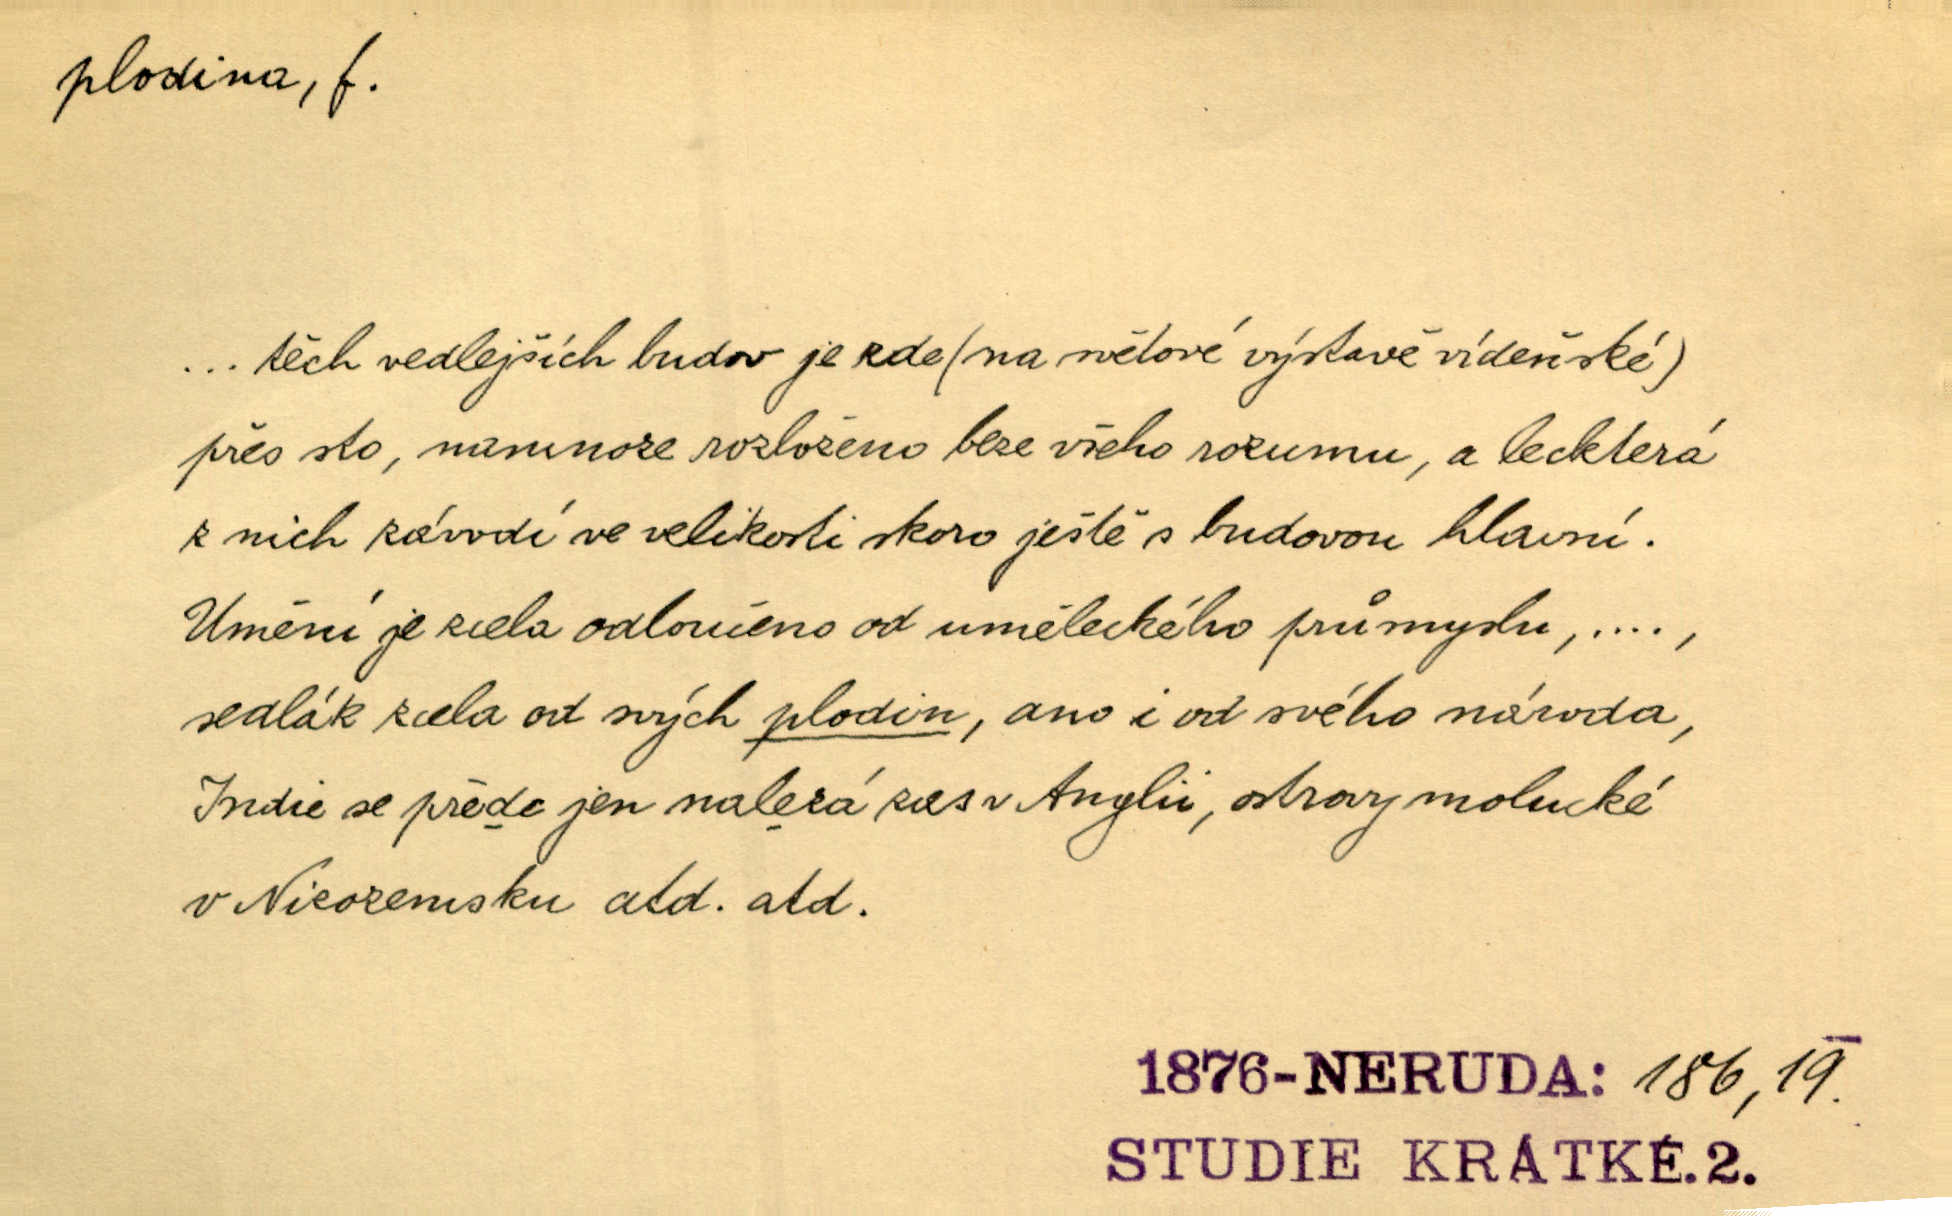 plodina, f.
... těch vedlejších budov je zde (na světové výstavě vídeňské)
přes sto, namnoze rozloženo beze všeho rozumu, a leckterá
z nich závodí ve velikosti skoro ještě s budovou hlavní.
Umění je zcela odloučeno od uměleckého průmyslu, ....,
sedlák zcela od svých plodin, ano i od svého národa,
Indie se přede jen nalezá zas v Anglii, ostrovy molucké
v Nizozemsku atd. atd.
1876-NERUDA: 186, 19.
STUDIE KRÁTKÉ.2.